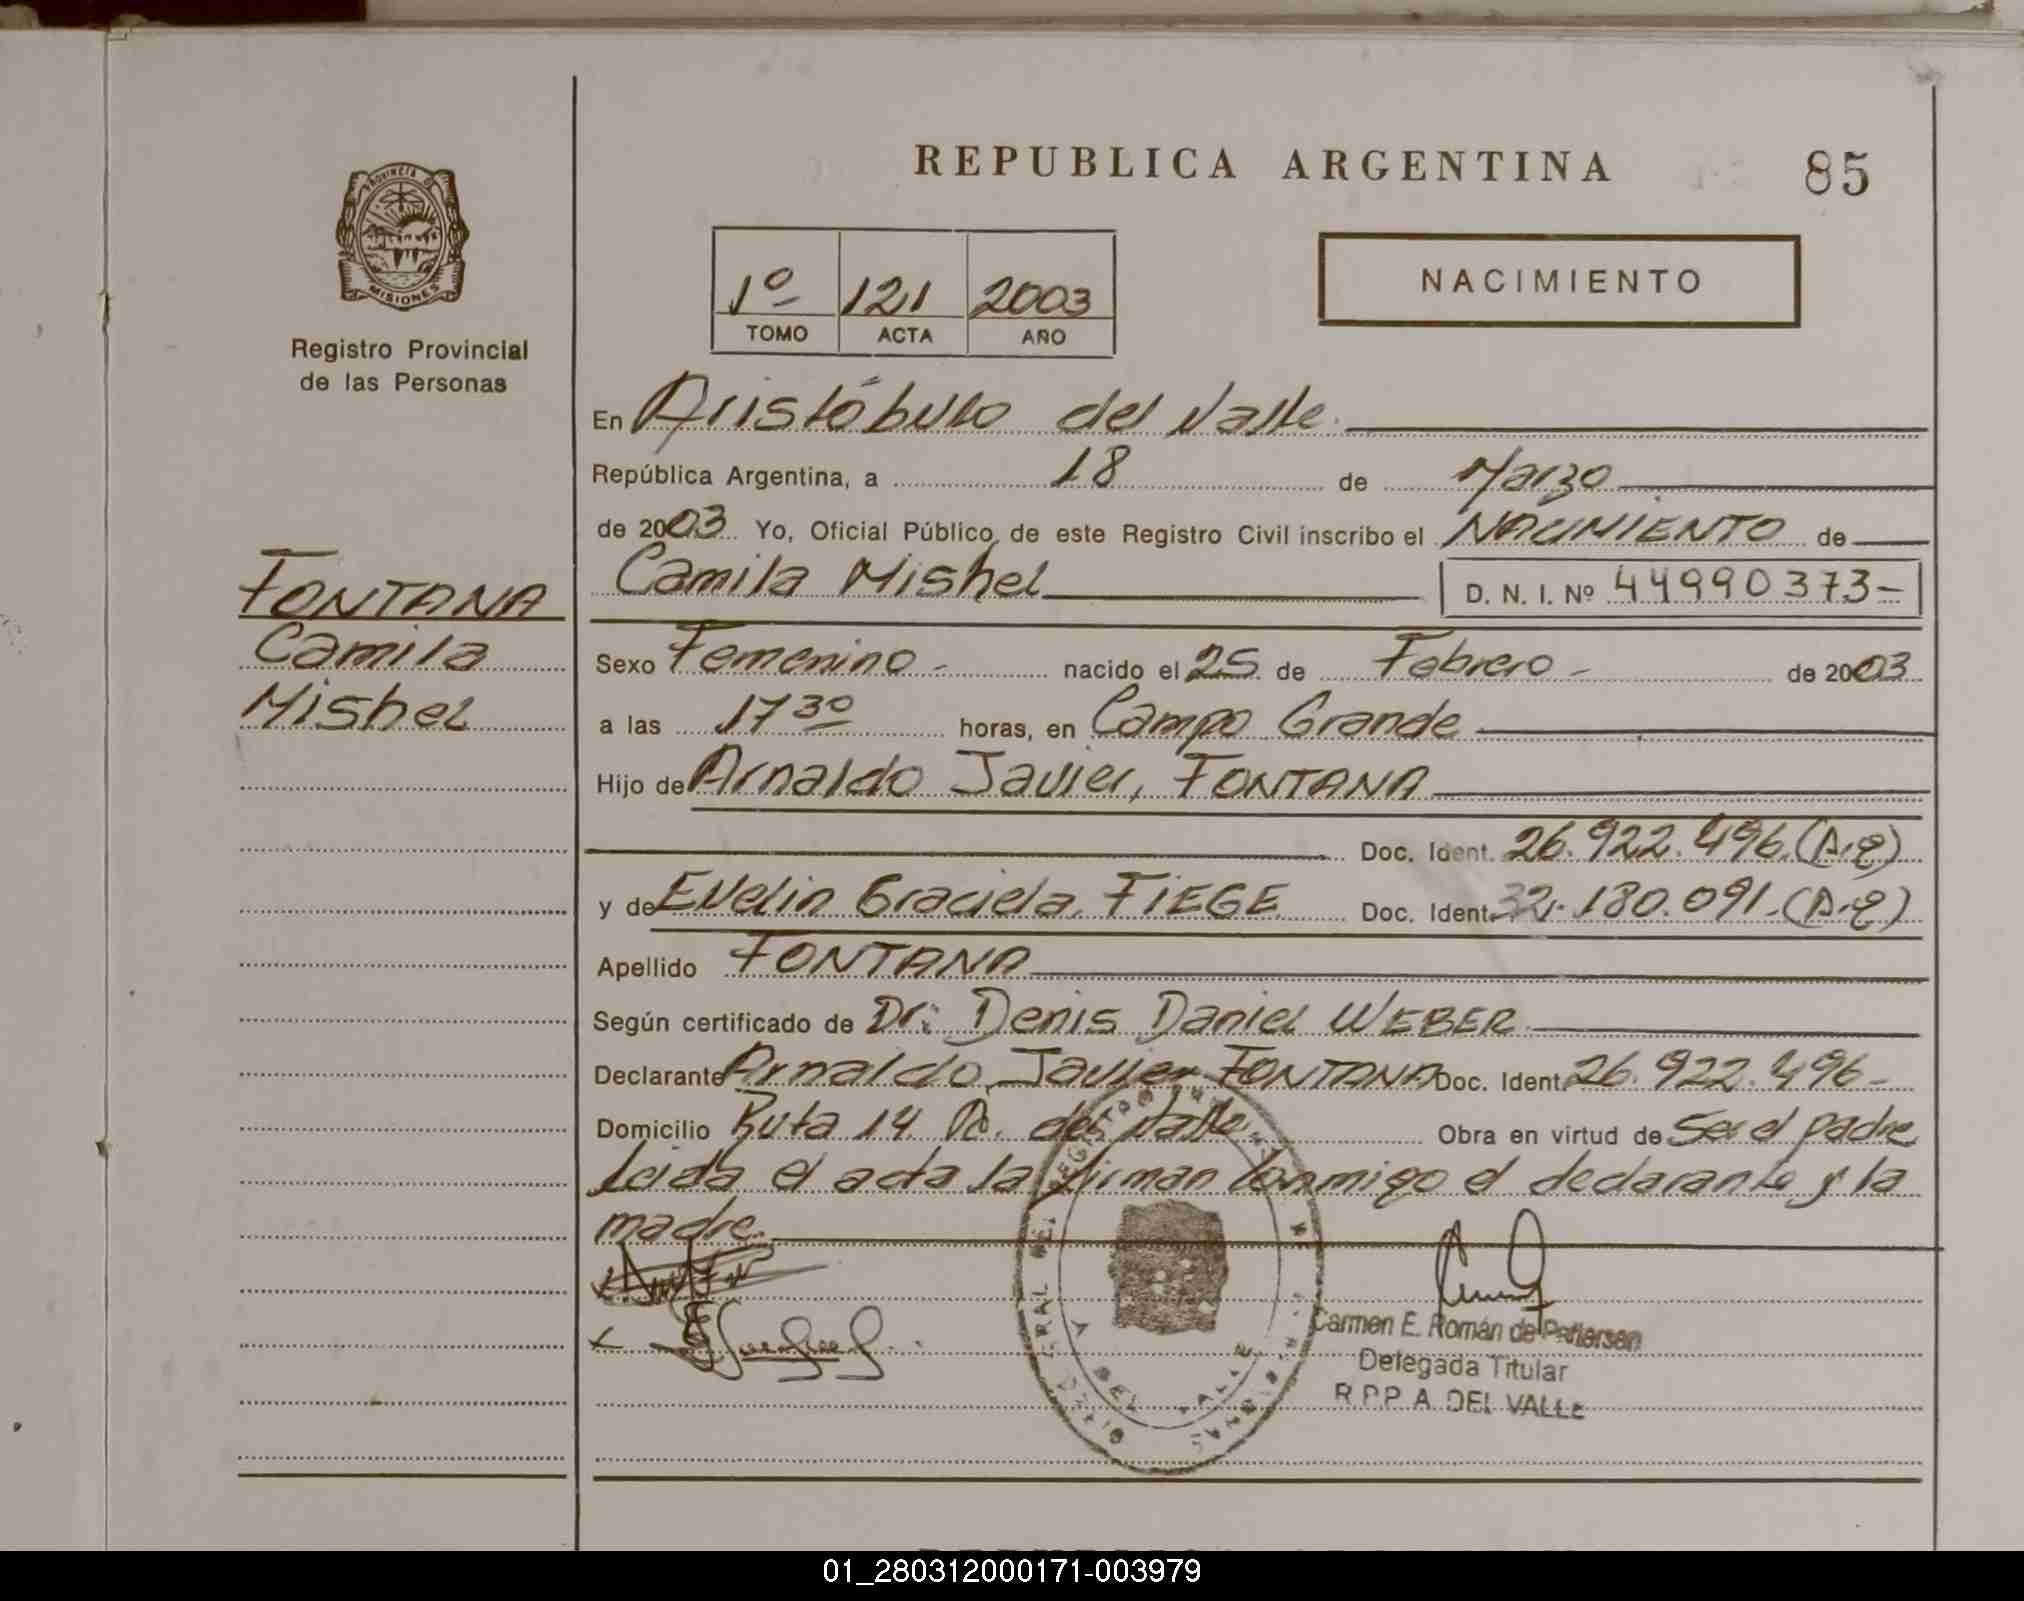 REPUBLICA ARGENTINA
85
PROVINCIA DE
MISIONES
Registro Provincial
de las Personas
1º 121 2003
TOMO ACTA AÑO
NACIMIENTO
En Aristóbulo del Valle.
República Argentina, a 18 de Marzo
de 2003 Yo, Oficial Público de este Registro Civil inscribo el NACIMIENTO de
Camila Mishel D. N. I. Nº 44990373-
FONTANA
Camila
Mishel
Sexo Femenino - nacido el 25 de Febrero - de 2003
a las 17 30 horas, en Campo Grande
Hijo de Arnaldo Javier, FONTANA
Doc. Ident. 26.922.496.
y de Evelin Graciela, FIEGE Doc. Ident. 32.180.091.
Apellido FONTANA
Según certificado de Dr. Denis Daniel WEBER
Declarante Arnaldo Javier FONTANA Doc. Ident. 26.922.496-
Domicilio Ruta 14 del Valle Obra en virtud de Ser el padre
Leida el acta la firman conmigo el declarante y la
madre.
Carmen E. Román de
Delegada Titular
R.P.P. A. DEL VALLE
DEL VALLE
01_280312000171-003979